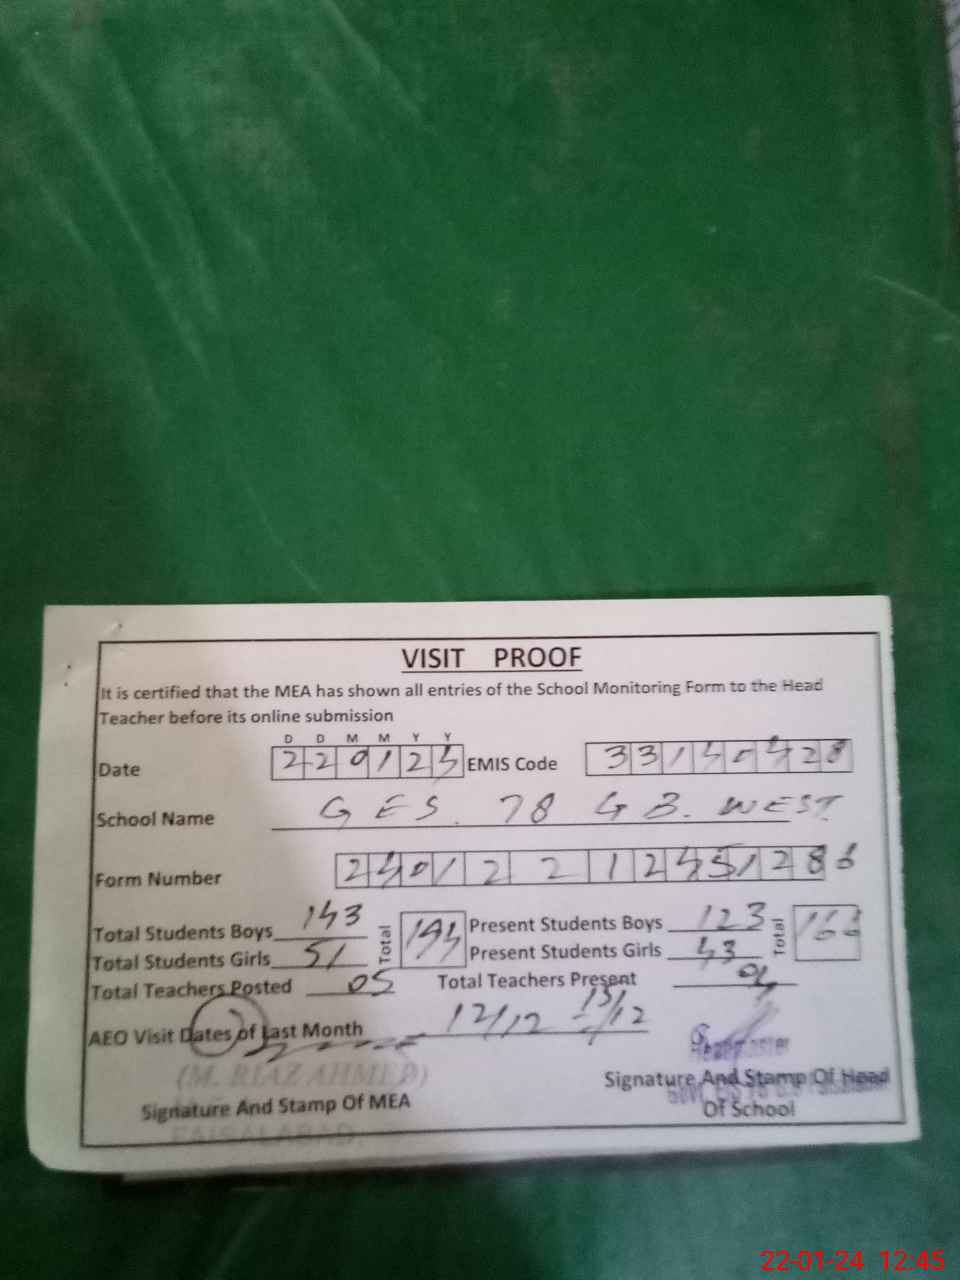 VISIT PROOF
It is certified that the MEA has shown all entries of the School Monitoring Form to the Head
Teacher before its online submission
D D M M Y Y
Date 220124 EMIS Code 33130428
School Name GES. 78 GB. WEST
Form Number 2401221245128
Total Students Boys 143 Total 194 Present Students Boys 123 Total 166
Total Students Girls 51 Present Students Girls 43
Total Teachers Posted 05 Total Teachers Present 04
AEO Visit Dates of Last Month 12/12 - 15/12
(M. RIAZ AHMED)
Headmaster
Signature And Stamp Of MEA Signature And Stamp Of Head
Of School
FAISALABAD.
22-01-24 12:45